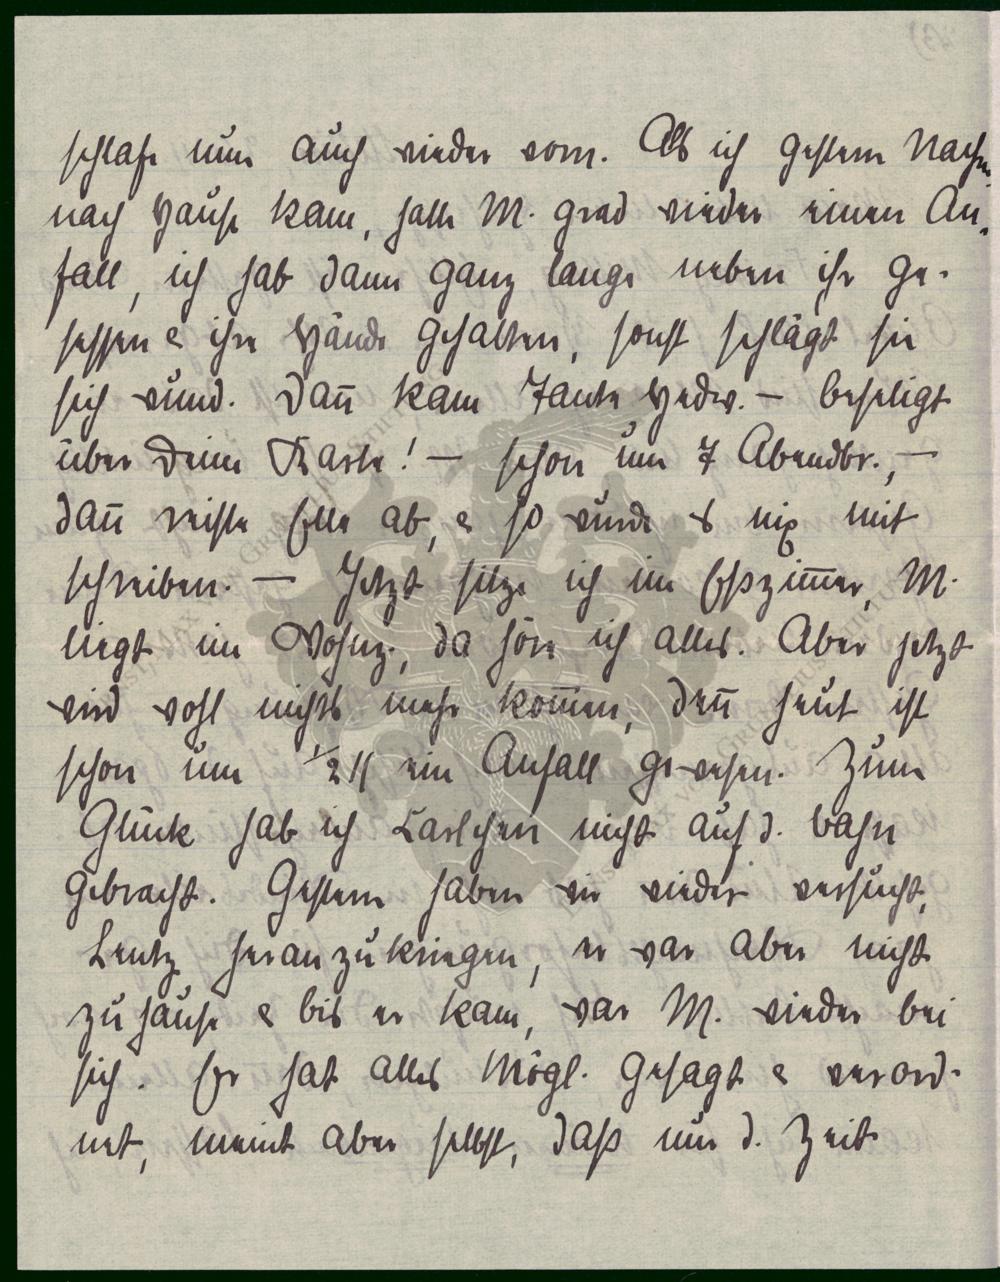 schlafe nun auch wieder vorn. Als ich gestern Nachm.
nach Hause kam, hatte M. grad wieder einen An-
fall, ich hab dann ganz lange neben ihr ge-
sessen & ihre Hände gehalten, sonst schlägt sie
sich wund. Dan̄ kam Tante Hedw. — beseligt
über Deine Karte! — schon um 7 Abendbr., —
dan̄ reiste Elle ab, & so wurde es nix mit
schreiben. — Jetzt sitze ich im Eßzim̄er, M.
liegt im Wohnz., da höre ich alles. Aber jetzt
wird wohl nichts mehr kom̄en, den̄ heut ist
schon um ½ 11 ein Anfall gewesen. Zum
Glück hab ich Karlchen nicht auf d. Bahn
gebracht. Gestern haben wir wieder versucht,
Lentz heranzukriegen, er war aber nicht
zuhause & bis er kam, war M. wieder bei
sich. Er hat alles Mögl. gesagt & verord-
net, meint aber selbst, daß nur d. Zeit